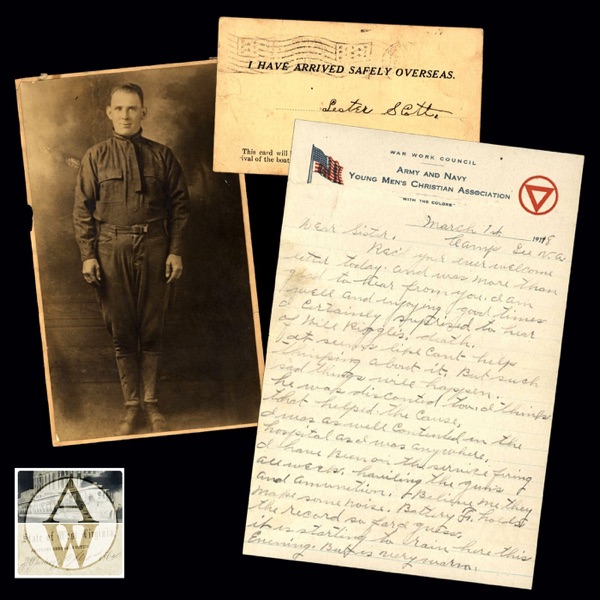 I HAVE ARRIVED SAFELY OVERSEAS.
Lester Scott.
This card will
rival of the boat
WAR WORK COUNCIL
ARMY AND NAVY
YOUNG MEN'S CHRISTIAN ASSOCIATION
"WITH THE COLORS"
March 1st 1918
Dear Sister. Camp Lee Va.
Rec' your ever welcome
letter today. and was more than
glad to hear from you. I am
well and enjoying good times
I Certainly suprized to hear
of Will Riggles. death.
it seems like Cant help
thinking about it. But such
sad things will happen.
he was discontented too. I think
that helped the Cause.
I was as well Contented in the
hospital as I was anywhere.
I have been on the service firing
all week. hauling the guns
and amunition. I Believe me they
make some noise. Battery F. holds
the record so far I guess.
it is starting to rain here this
Evening. But is very warm.
A
W
State of West Virginia